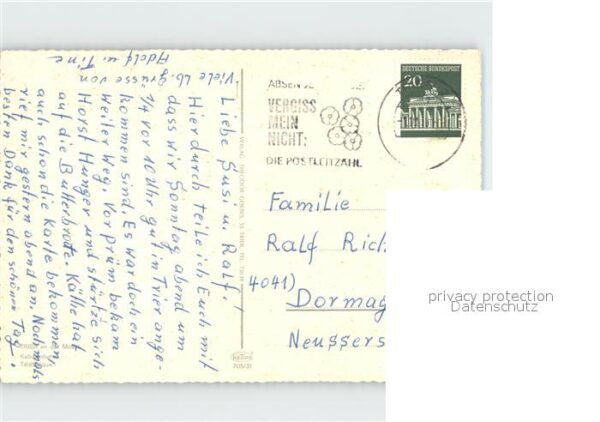 Liebe Susi u. Ralf!
Hierdurch teile ich Euch mit
dass wir Sonntag abend um
¼ vor 10 Uhr gut in Trier ange=
kommen sind. Es war doch ein
weiter Weg. Vor Prüm bekam
Horst Hunger und stürzte sich
auf die Butterbrote. Käthe hat
auch schon die Karte bekommen,
rief mir gestern abend an. Nochmals
besten Dank für den schönen Tag.
Viele lb. Grüsse von
Adolf u. Tine
705/31
ABSEN
VERGISS
MEIN
NICHT:
DIE POSTLEITZAHL
DEUTSCHE BUNDESPOST
20
Familie
Ralf Rich
4041)
Dormag
Neussers
privacy protection
Datenschutz